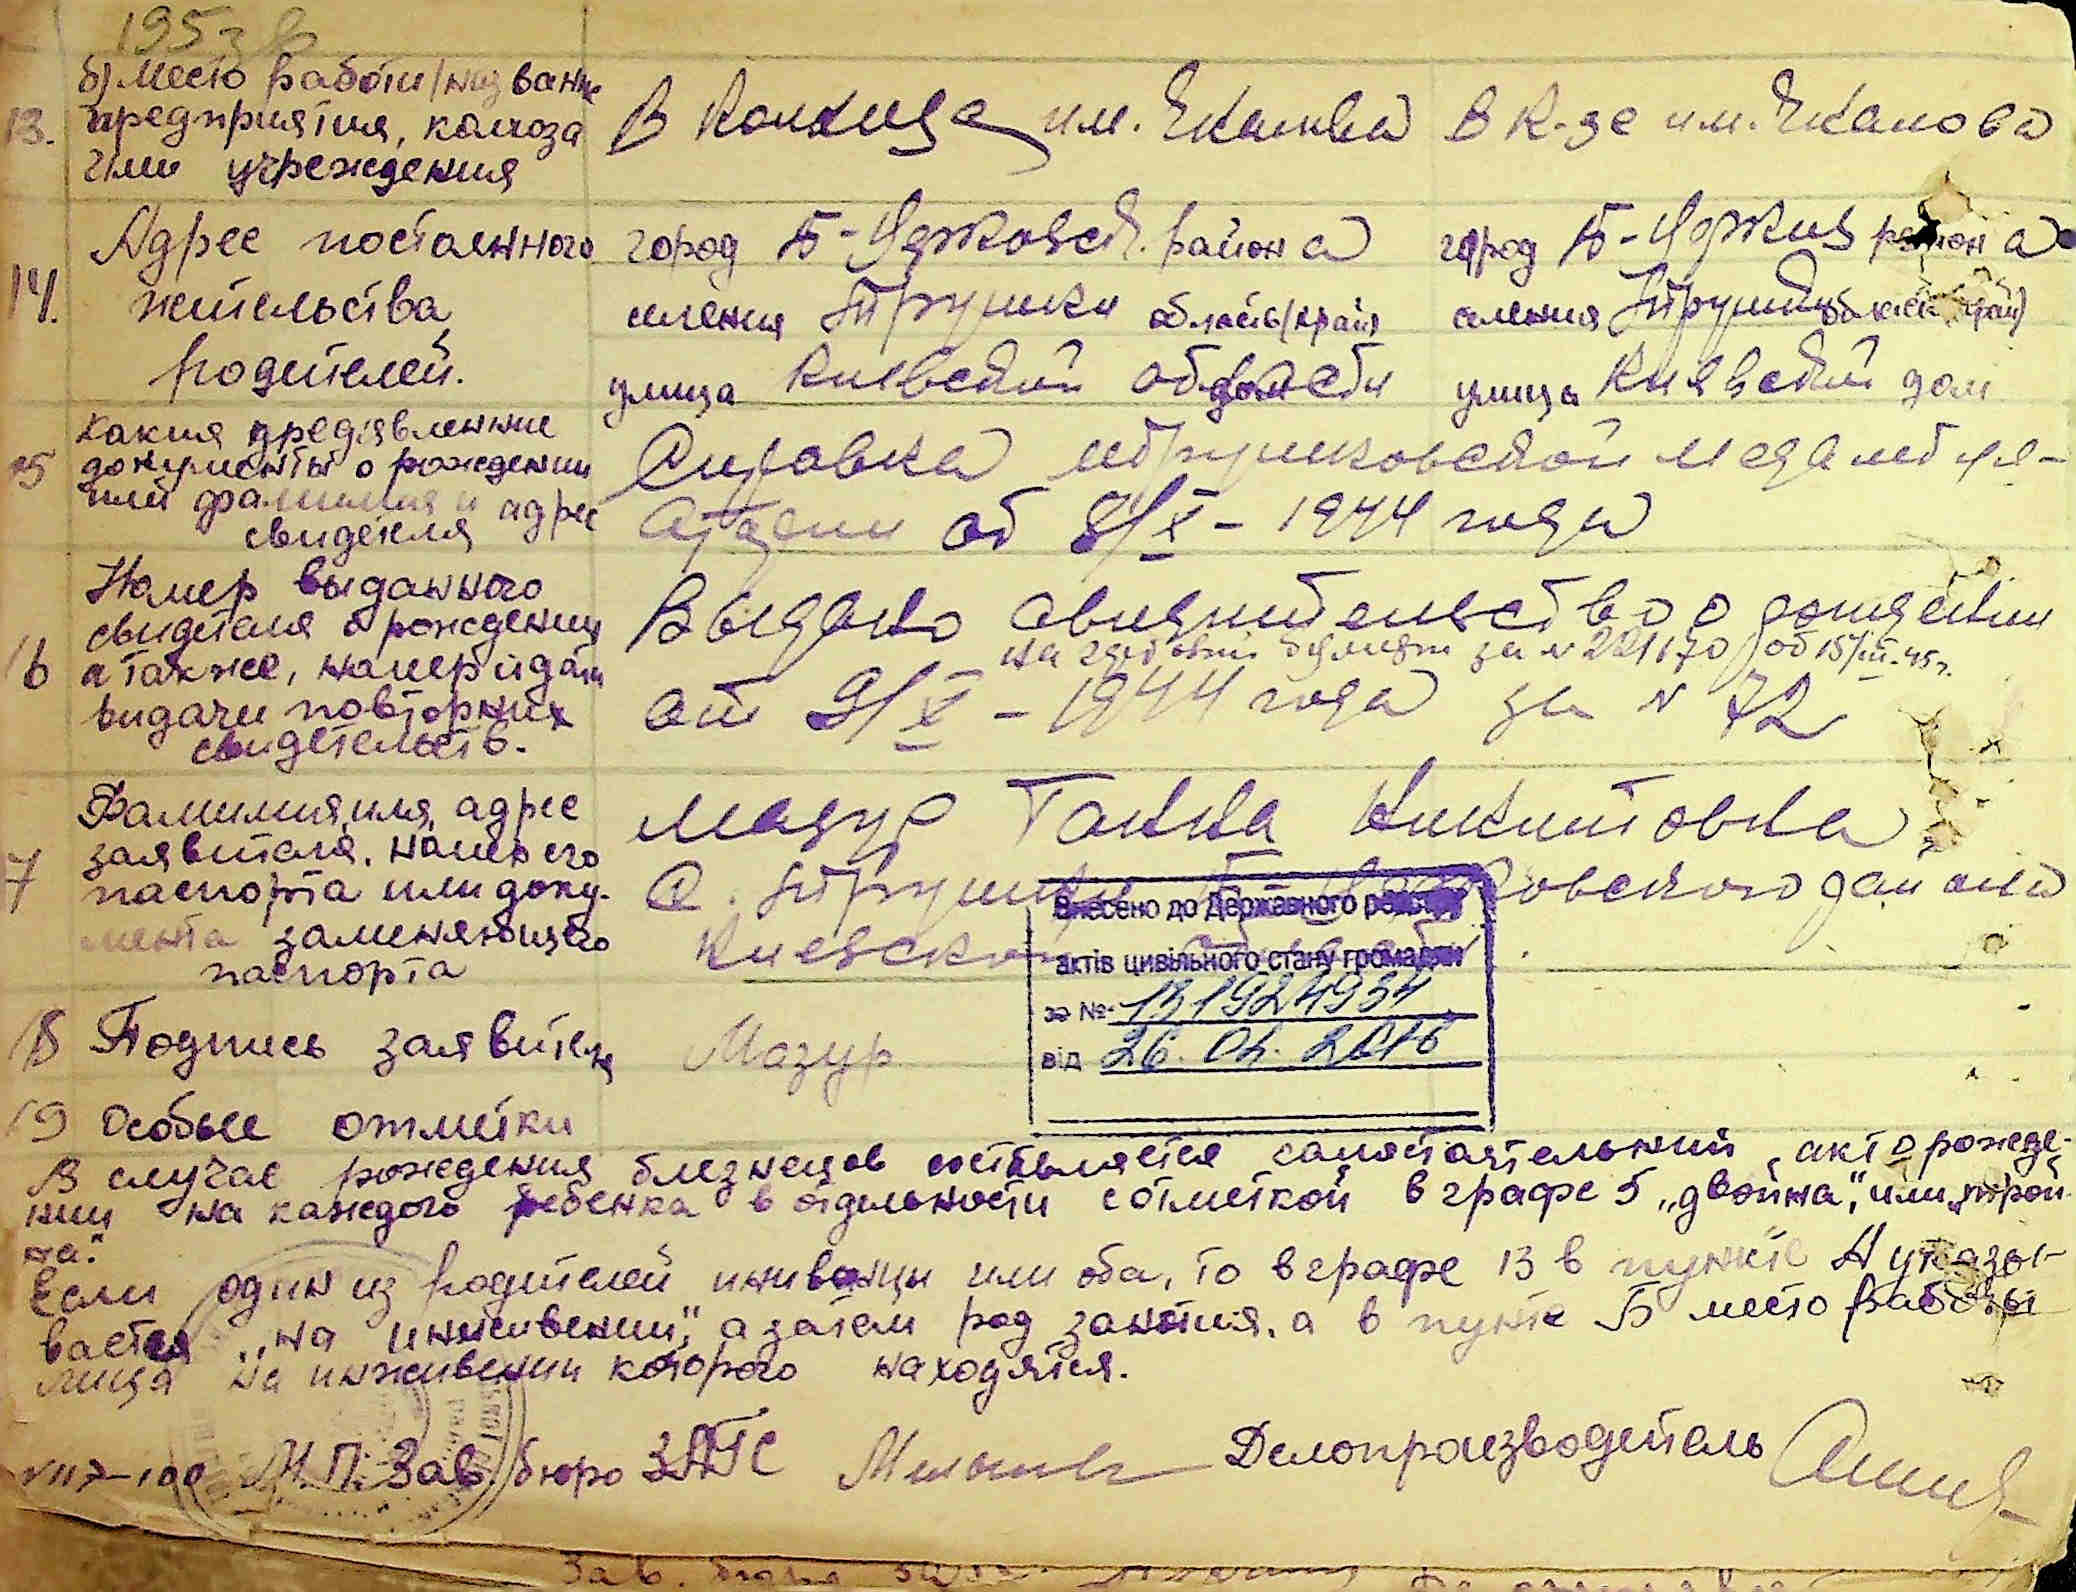 б) место работи/название
13. предприятия, колхоза
или учреждения
В колхоза им. Чкалова В к-зе им. Чкалова
Адрес постоянного
14. жительства
родителей.
город Б-Церковск. района город Б-Церкия района
селения Трушки область(край) селения
улица Киевской области улица Киевской дом
какия предявленние
15 документы о рождении
или фамилия и адрес
свидетеля
Справка трушковской
от 8/X - 1944 года
Номер выданного
свидетеля о рождении
16 а также, номер и дати
видачи повторних
свидетельств.
Выдано свидительство о рождении
на гербовой бумаги за № 221170 от 15/III-45г.
от 9/X - 1944 года за № 72
Фамилия, имя, адрес
заявителя, номер его
7 паспорта или доку-
мента заменяющего
паспорта
Мазур Ганна Никитовна
С. Трушки Б Церковского района
Киевской
Внесено до Державного реєстру
актів цивільного стану громадян
за № 131924934
від 26.02.2016
18 Подпись заявителя Мазур
19 Особые отметки
В случае рождения близнецов состовляется самостоятельний акт о рожде-
нии на каждого ребенка в отдельности с отметкой в графе 5 „двойна", или „трой-
на".
Если один из родителей иживенци или оба, то в графе 13 в пункте А указы-
вается „на иживении", а затем род занятия, а в пункте Б место работы
лица на иживении которого находятся.
М.П. Зав. бюро ЗАГС Делопроизводитель
Зав. бюро